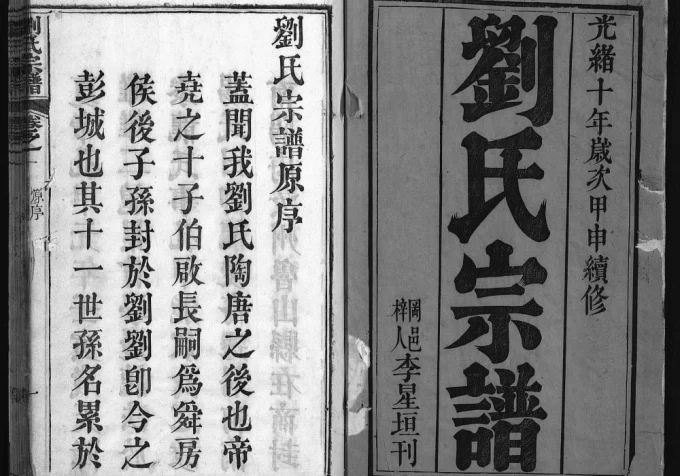 光緒十年歲次甲申續修
劉氏宗譜
岡邑
梓人李星垣刊
劉氏宗譜原序
蓋聞我劉氏陶唐之後也帝
堯之十子伯啟長嗣為舜房
侯後子孫封於劉劉卽今之
彭城也其十一世孫名累於
劉氏宗譜
原序